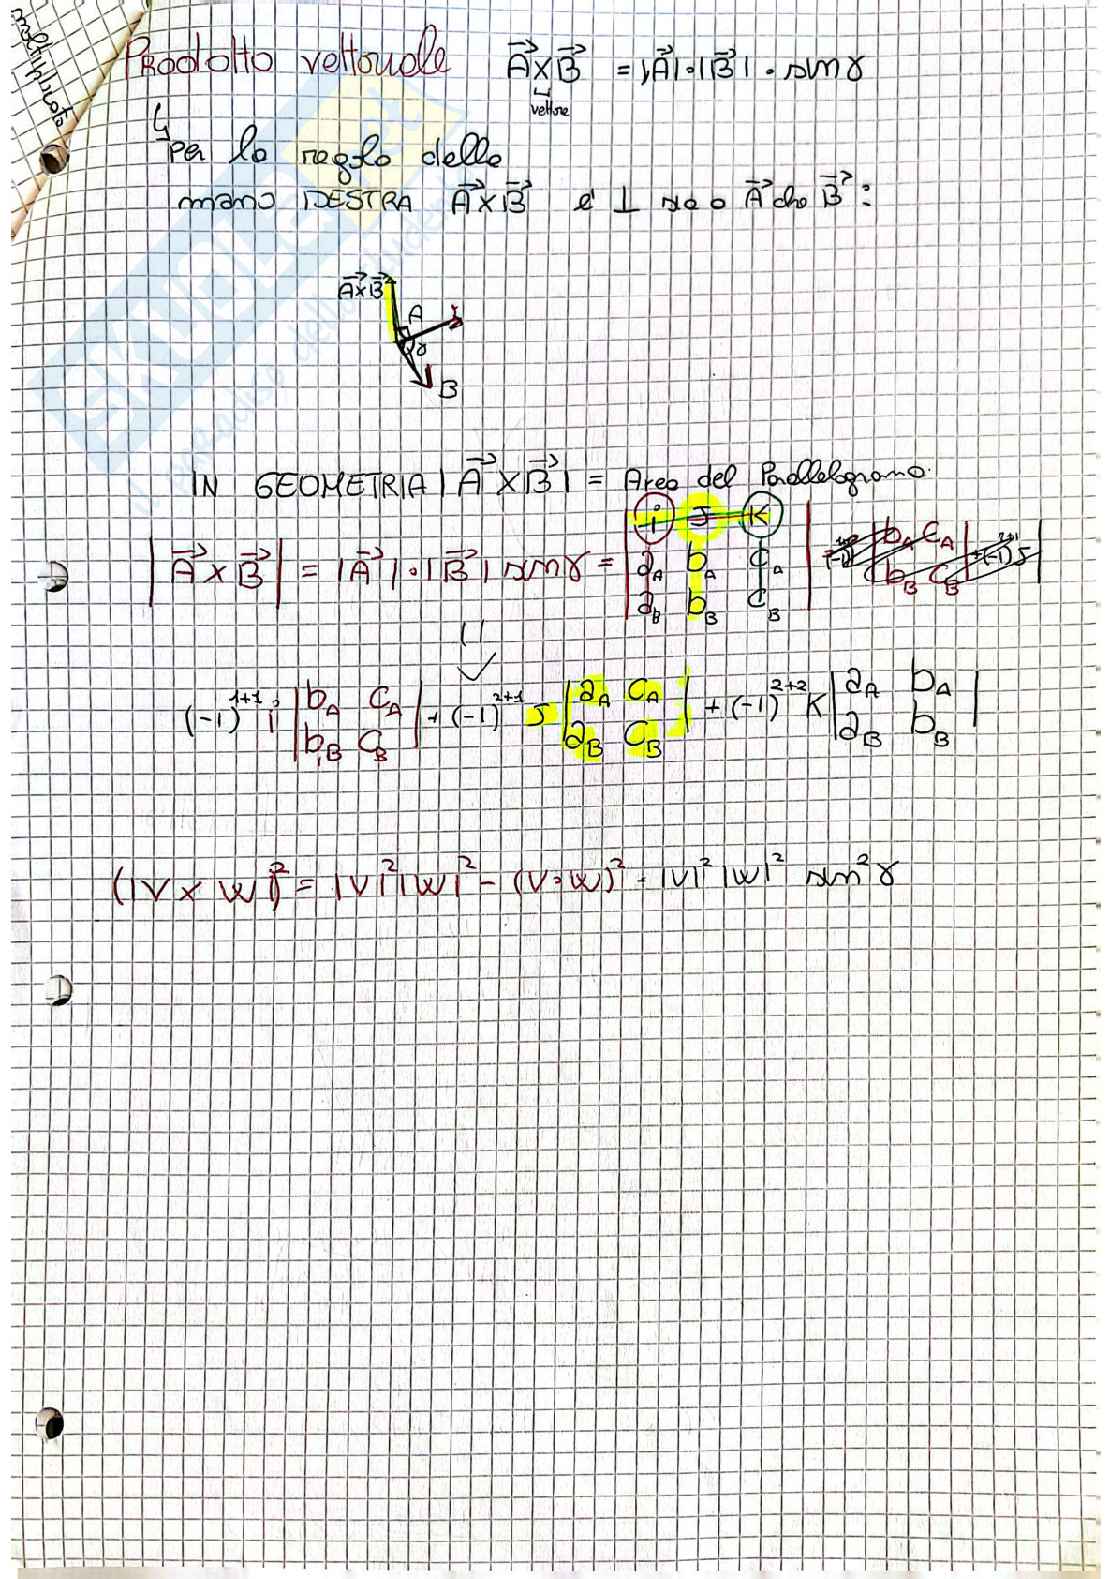 moltiplicato
Prodotto vettoriale A⃗×B⃗ = |A⃗|·|B⃗|·sinγ
vettore
↳ per la regola della
mano DESTRA A⃗×B⃗ è ⊥ sia a A⃗ che B⃗:
A⃗×B⃗
A
γ
B
IN GEOMETRIA |A⃗×B⃗| = Area del Parallelogramo.
|A⃗×B⃗| = |A⃗|·|B⃗| sinγ = | i J K |
| a_A b_A c_A |
| a_B b_B c_B |
| b_A c_A |
| b_B c_B |
(-1)^1+1 i | b_A c_A | + (-1)^2+1 J | a_A c_A | + (-1)^2+2 K | a_A b_A |
| b_B c_B | | a_B c_B | | a_B b_B |
(|V × W|)² = |V|²|W|² - (V·W)² · |V|²|W|² sin²γ
SKUOLA.net